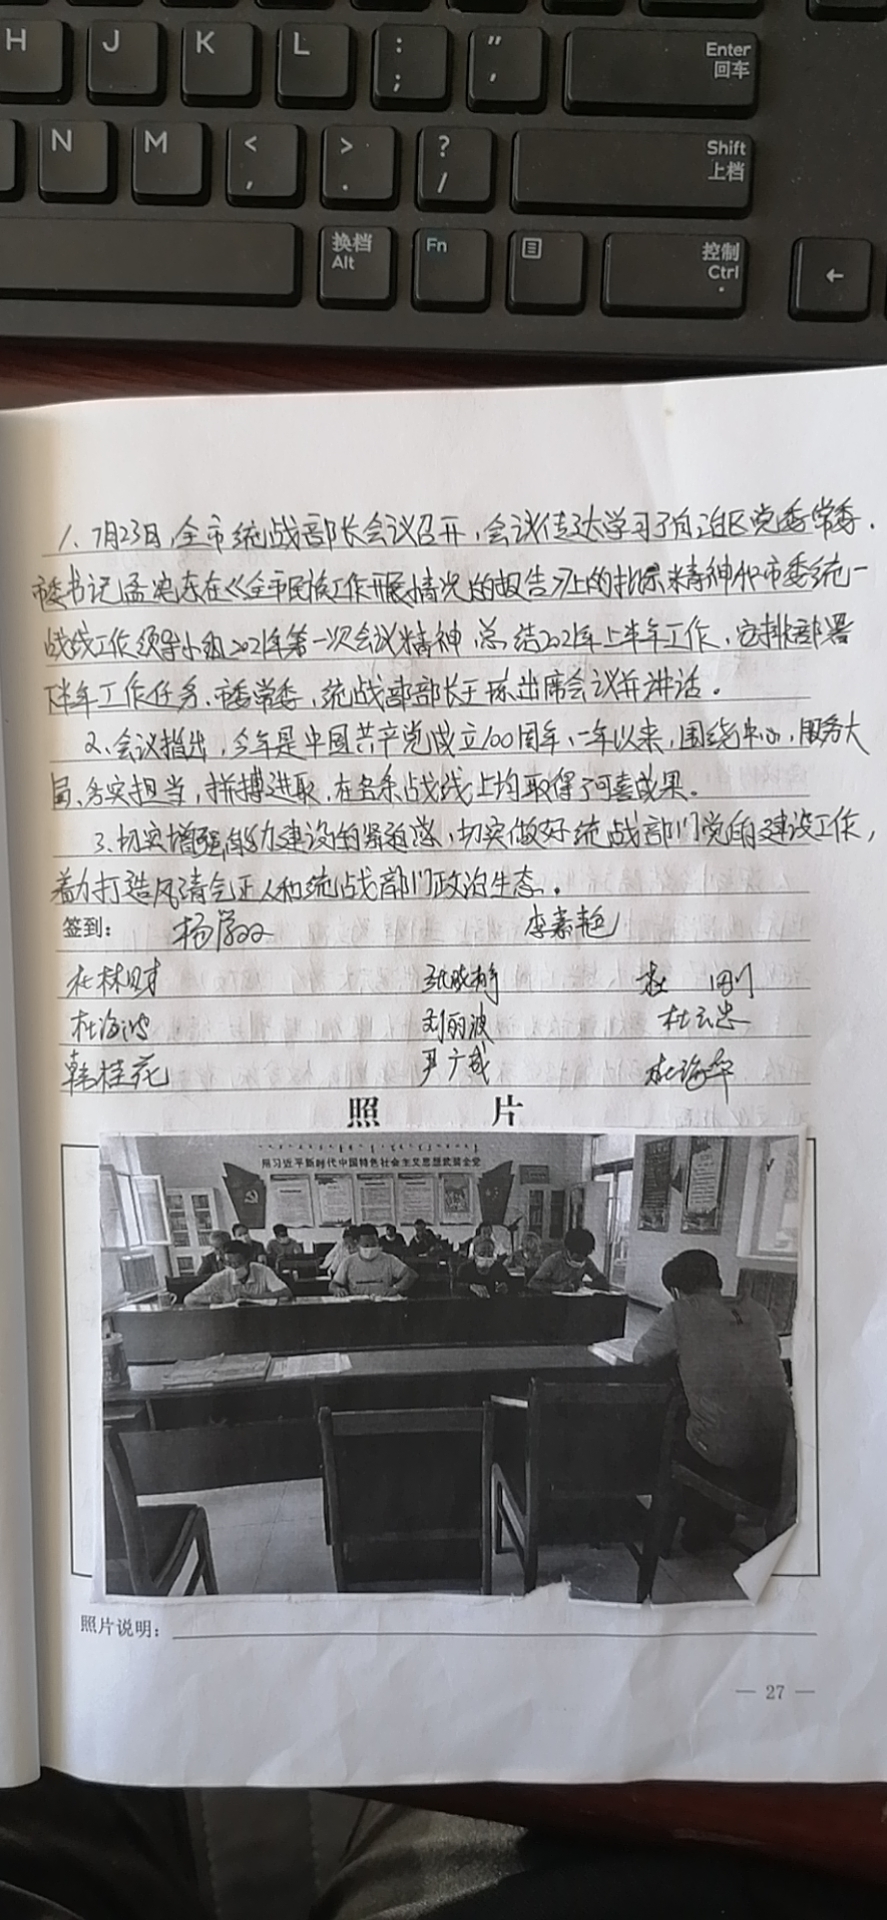 H J K L : ; " ' Enter 回车
N M < , > . ? / Shift 上档
换档 Alt Fn 控制 Ctrl ←
1、7月23日,全市统战部长会议召开,会议传达学习了自治区党委常委.
市委书记孟宪东在《全市民族工作开展情况的报告》上的批示精神和市委统一
战线工作领导小组2021年第一次会议精神,总结2021年上半年工作,安排部署
下半年工作任务.市委常委,统战部部长王栋出席会议并讲话。
2、会议指出,今年是中国共产党成立100周年,一年以来,围绕中心,服务大
局、务实担当,拼搏进取,在各条战线上均取得了可喜成果。
3、切实增强能力建设的紧迫感,切实做好统战部门党的建设工作,
着力打造风清气正人和统战部门政治生态.
签到: 李素艳
杜林财 张晓静 杜刚
杜海鸿 刘丽波 杜云忠
韩桂花 尹广成 杜海军
照 片
用习近平新时代中国特色社会主义思想武装全党
照片说明:
— 27 —